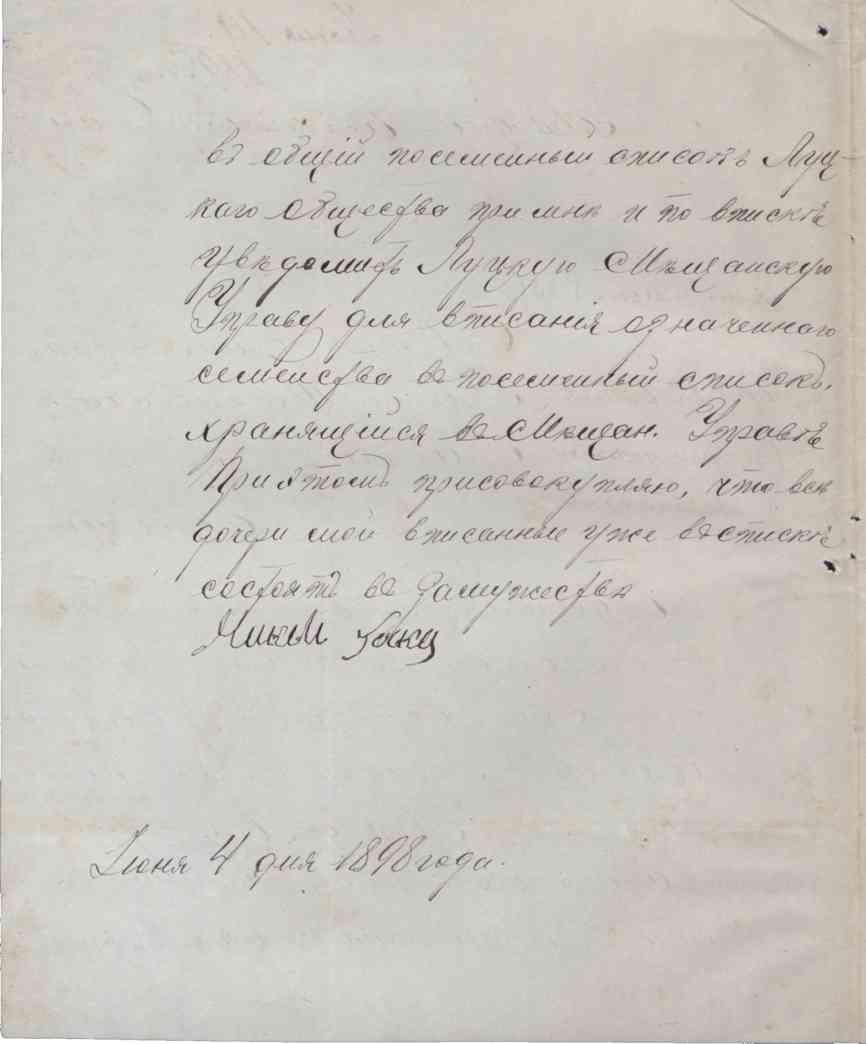 въ общій посемейный списокъ Луц-
каго Общества при мнѣ и по впискѣ
увѣдомить Луцкую Мѣщанскую
Управу для вписанія означеннаго
семейства въ посемейный списокъ,
хранящійся въ Мѣщан. Управѣ
При этомъ присовокупляю, что всѣ
дочери мои вписанные уже въ спискѣ
состоятъ въ замужествѣ
Іюня 4 дня 1898 года.